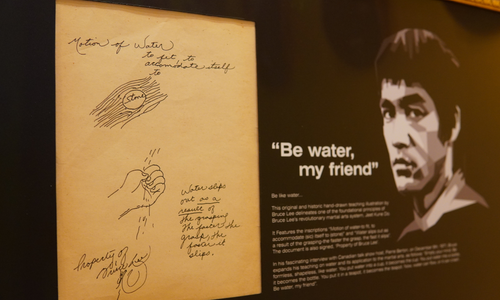 Motion of Water
to fit, to
accomodate itself
to
stone
Water slips
out as a
result of
the grasping
The faster the
grasp, the
faster it
slips.
Property of
Bruce Lee
"Be water,
my friend"
Be like water...
This original and historic hand drawn teaching illustration by
Bruce Lee delineates one of the foundational principles of
Bruce Lee's revolutionary martial arts system, Jeet Kune Do.
It Features the inscriptions "Motion of water to fit, to
accommodate itself to stone" and "Water slips out as
a result of the grasping the faster the grasp, the faster it slips".
The document is also signed, "Property of Bruce Lee".
In this fascinating interview with Canadian talk show host, Pierre Berton, on December 9th, 1971, Bruce
expands the
formless, shapeless, like water.
it becomes the
Be water, my friend".